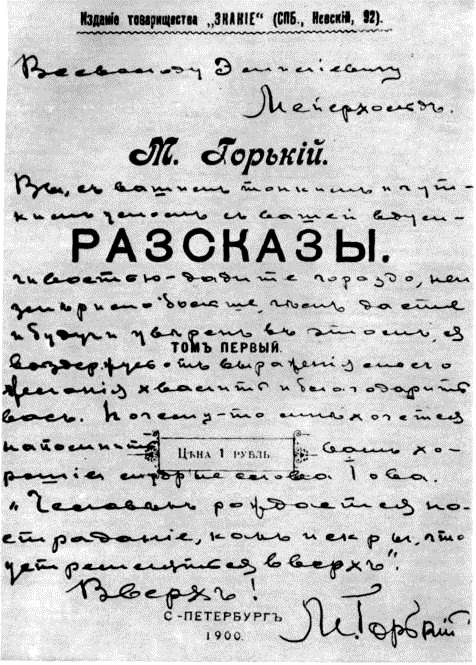 Изданіе товарищества „ЗНАНІЕ“ (СПБ., Невскій, 92).
Всеволоду Эмиліевичу
Мейерхольдъ.
М. Горькій.
Вы, съ вашимъ тонкимъ и чут-
кимъ умомъ, съ вашей вдум-
РАЗСКАЗЫ.
чивостью - дадите гораздо, неи
змѣримо больше, чѣмъ даете
и будучи увѣренъ въ этомъ, я
ТОМЪ ПЕРВЫЙ.
воздержусь отъ выраженія моего
желанія хвалить и благодарить
васъ. Почему-то мнѣ хочется
напомнить вамъ хо-
ЦѢНА 1 РУБЛЬ
рошія слова Іова.
„Человѣкъ рождается на-
страданіе, какъ искры, что
устремляются вверхъ“.
Вверхъ!
С-ПЕТЕРБУРГЪ
1900.
М. Горькій